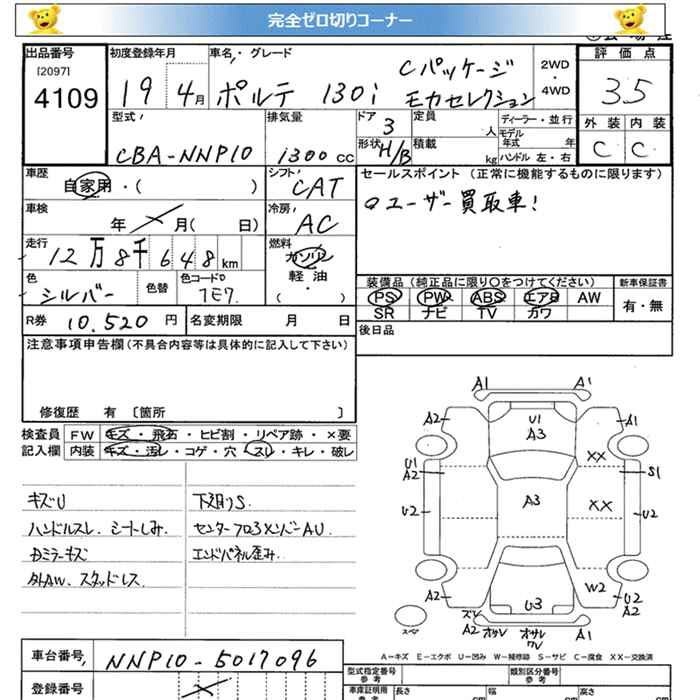 完全ゼロ切りコーナー
出品番号
[2097]
4109
初度登録年月
19 4月
車名・グレード
ポルテ 130i Cパッケージ
モカセレクション
2WD
・
4WD
評価点
3.5
型式
CBA-NNP10
排気量
1300 cc
ドア
3
形状 H/B
定員
人
積載
kg
ディーラー・並行
モデル
年式 年
ハンドル 左・右
外装 内装
C C
車歴
自家用・( )
シフト
CAT
車検
年 月( 日)
冷房
AC
走行
12万8千648km
燃料
ガソリン
軽・油
( )
色
シルバー
色替
色コードNo
1E7
R券 10,520 円
名変期限 月 日
セールスポイント (正常に機能するものに限ります)
ユーザー買取車!
装備品(純正品に限り○をつけてください)
PS PW ABS エアB AW
SR ナビ TV カワ
新車保証書
有・無
後日品
注意事項申告欄(不具合内容等は具体的に記入して下さい)
修復歴 有 〔箇所 〕
検査員
記入欄
FW キズ・飛石・ヒビ割・リペア跡・×要
内装 キズ・汚レ・コゲ・穴・スリ・キレ・破レ
キズU
ハンドルスレ、シートしみ、
Dミラーキズ
外AW、スタッドレス
下廻りS.
センターフロアメンバーAU.
エンドパネル歪み.
A1 A1
A2 U1 A1
A3
XX
U1
A2
S1
U2 A3 XX U2
W2
A2 U3 U2
A2
ズレ
A2 オサレ オサレ A1
スペア
A…キズ E…エクボ U…凹み W…補修跡 S…サビ C…腐食 XX…交換済
車台番号 NNP10-5017096
登録番号
型式指定番号
参考
類別区分番号
参考
車庫証明用
参考
長さ
cm
幅
cm
高さ
cm